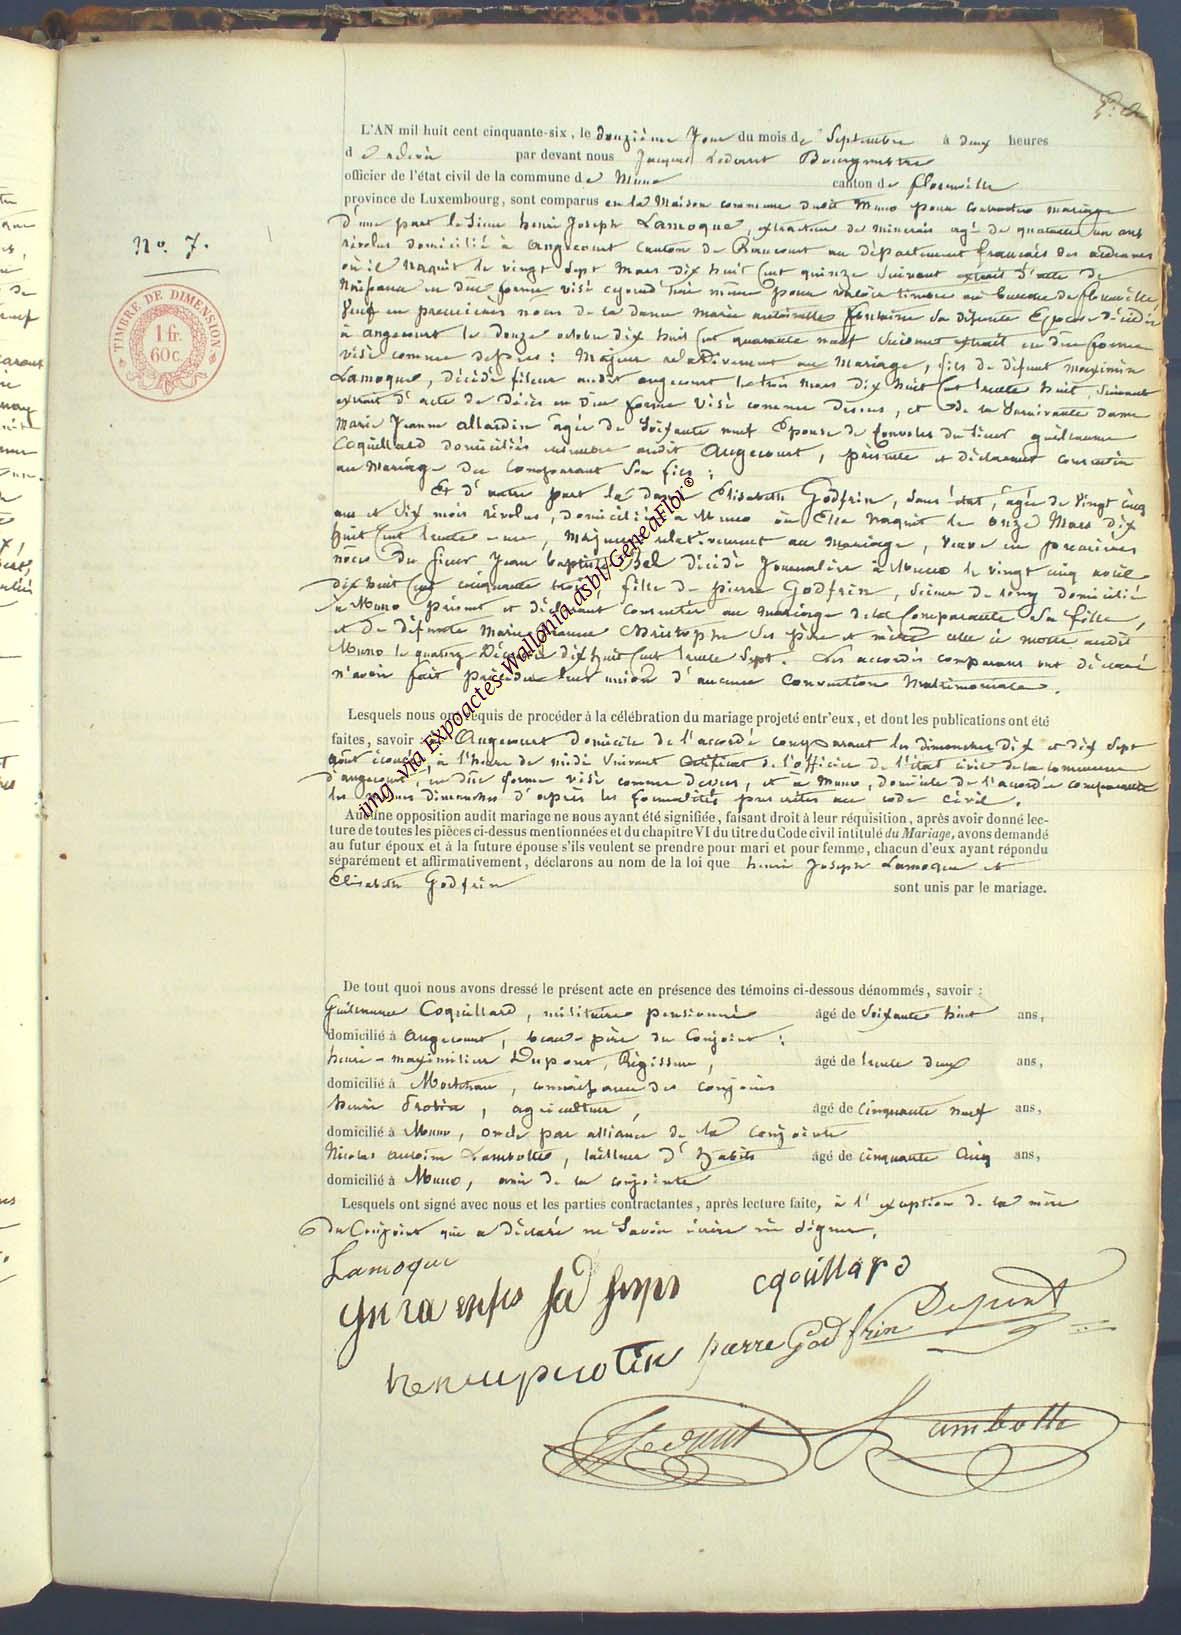 N° 7.
TIMBRE DE DIMENSION
1 fr.
60 c.
L'AN mil huit cent cinquante-six, le douzième Jour du mois de Septembre à deux heures
de relevée par devant nous Jacques Ledrant Bourgmestre
officier de l'état civil de la commune de Muno canton de florenville
province de Luxembourg, sont comparus en la Maison commune dudit Muno pour contracter mariage
D'une part le Sieur henri Joseph Lamoque, extracteur de minerais agé de quarante un ans
révolus domicilié à Angecourt Canton de Raucourt au département français des ardennes
où il Naquit le vingt sept mars dix huit Cent quinze Suivant extrait d'acte de
Naissance en due forme visé cejourd'hui même pour valoir timbre au bureau de florenville
Veuf en premières noces de la dame marie antoinette fontaine Sa défunte Epouse Décédée
à angecourt le douze octobre dix huit Cent quarante neuf Suivant extrait en due forme
visé comme dessus : Majeur relativement au Mariage, fils de défunt maximin
Lamoque, décédé fileur audit angecourt le trois mars dix huit Cent trente huit, Suivant
extrait d'acte de Décès en Due forme Visé comme dessus, et de la Survivante dame
Marie Jeanne allardin âgée de Soixante neuf Epouse de Convoles du Sieur guillaume
Coquillard domiciliés ensemble audit Angecourt, présente et déclarant consentir
au Mariage du Comparant Son fils ;
Et d'autre part la dame Elisabeth Godfrin, Sans état, âgée de Vingt cinq
ans et Six mois révolus, domiciliée à Muno où Elle Naquit le onze Mars dix
huit Cent trente une, Majeure relativement au mariage, Veuve en premières
nôces du Sieur Jean baptiste Bel décédé Journalier à Muno le vingt cinq août
dix huit Cent cinquante trois, fille de pierre Godfrin, Scieur de long domicilié
à Muno présent et déclarant Consentir au mariage de la Comparante Sa fille,
et de défunte Marie Jeanne Christophe Ses père et mère celle ci morte audit
Muno le quatorze Décembre dix huit Cent trente Sept. Les accordés comparans ont déclaré
n'avoir fait précéder leur union d'aucune Convention Matrimoniale.
Lesquels nous ont requis de procéder à la célébration du mariage projeté entr'eux, et dont les publications ont été
faites, savoir à Angecourt domicile de l'accordé comparant les dimanches dix et dix Sept
août écoulé, à l'heure de midi Suivant Certificat de l'officier de l'état civil de la commune
d'angecourt, en due forme visé comme dessus, et à Muno, domicile de l'accordée comparante
les mêmes dimanches d'après les formalités prescrites au code Civil.
Aucune opposition audit mariage ne nous ayant été signifiée, faisant droit à leur réquisition, après avoir donné lec-
ture de toutes les pièces ci-dessus mentionnées et du chapitre VI du titre du Code civil intitulé du Mariage, avons demandé
au futur époux et à la future épouse s'ils veulent se prendre pour mari et pour femme, chacun d'eux ayant répondu
séparément et affirmativement, déclarons au nom de la loi que henri Joseph Lamoque et
Elisabeth Godfrin sont unis par le mariage.
De tout quoi nous avons dressé le présent acte en présence des témoins ci-dessous dénommés, savoir :
Guillaume Coquillard, militaire pensionné âgé de Soixante huit ans,
domicilié à Angecourt, beau-père du Conjoint ;
henri-maximilien Dupont, Régisseur, âgé de trente deux ans,
domicilié à Mortehan, connaissance des conjoins
henri Protin, agriculteur, âgé de cinquante neuf ans,
domicilié à Muno, oncle par alliance de la conjointe
Nicolas antoine Lambotte, tailleur d'habits âgé de cinquante cinq ans,
domicilié à Muno, ami de la conjointe
Lesquels ont signé avec nous et les parties contractantes, après lecture faite, à l'exception de la mère
du Conjoint qui a déclaré ne Savoir écrire ni Signer.
Lamoque
cqouillard
Dupont
pierre Godfrin
henri protin
Ledrant
Lambotte
img via Expoactes-Wallonia.asbl/GeneaFlor®